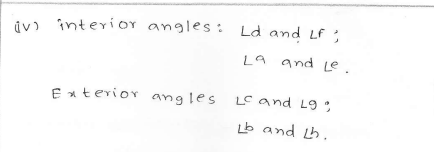 (iv) interior angles : ∠d and ∠f ;
∠a and ∠e .
Exterior angles ∠c and ∠g ;
∠b and ∠h .